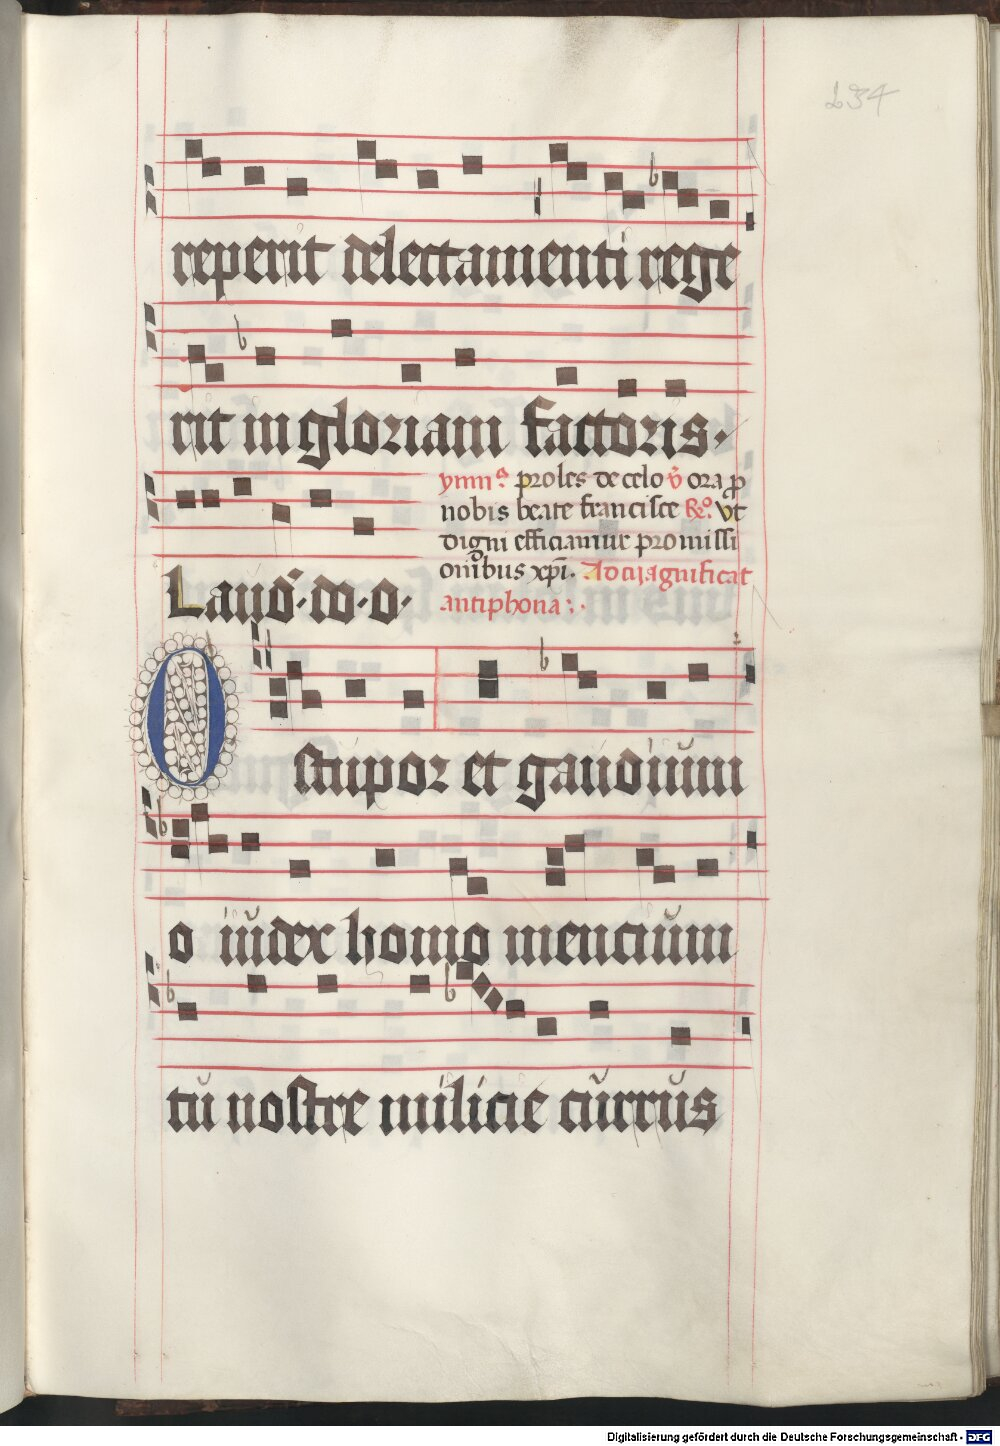 234
reperit delectamenti rege
rit in gloriam factoris.
ymnꝰ proles de celo v̇ ora p̱
nobis beate francisce Rꝰ. vt
digni efficiamur promissi
onibus xp̄i. Ad magnificat
Laud. do. o.
antiphona:.
O stupor et gaudium
o iudex homo mencium
tu nostre milicie currus
Digitalisierung gefördert durch die Deutsche Forschungsgemeinschaft - DFG